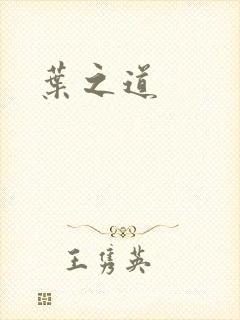 葉之道
王隽英